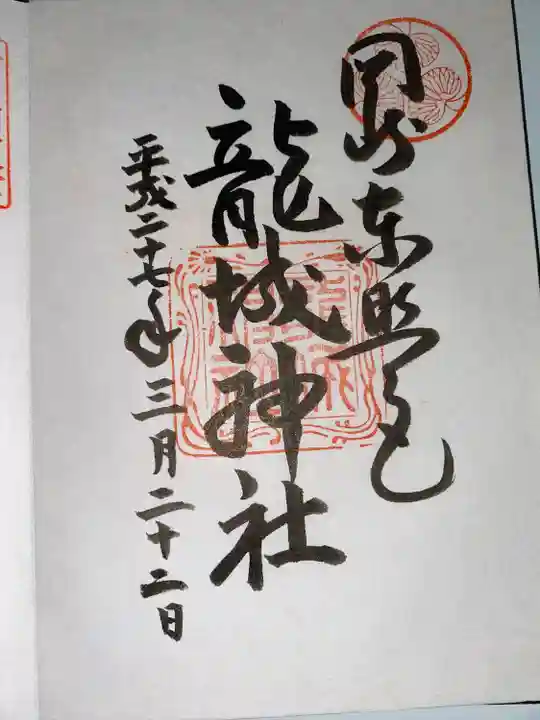 岡崎東照宮
龍城神社
平成二十七年三月二十二日